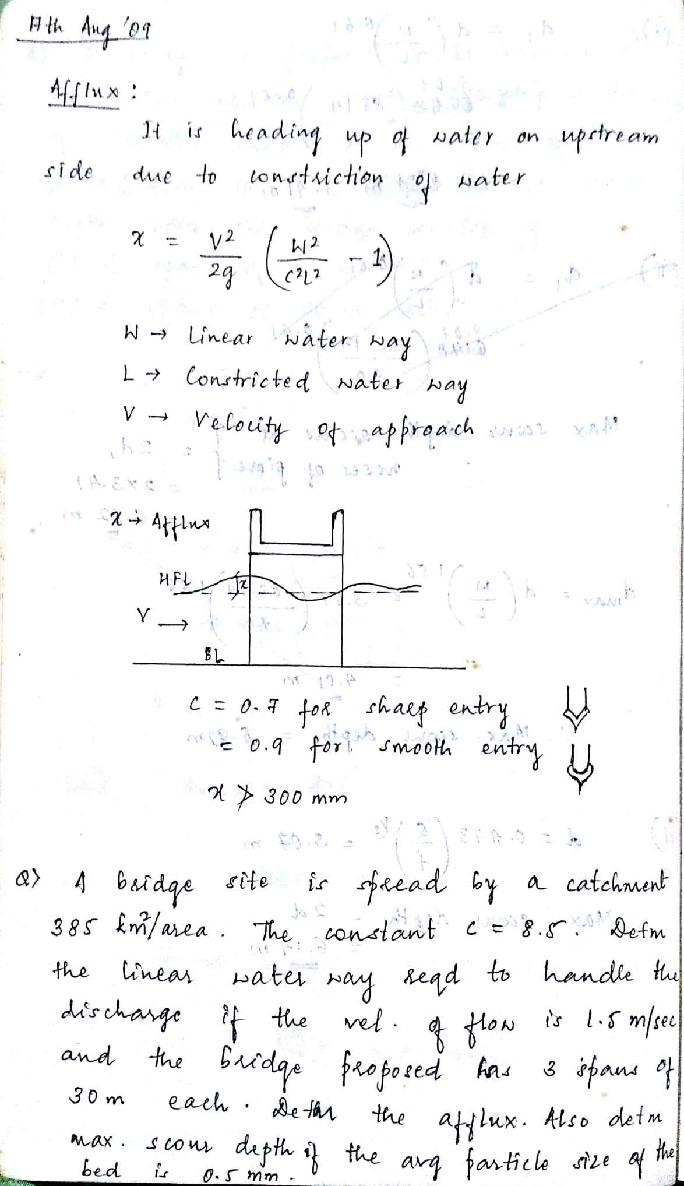 17th Aug '09
Afflux :
It is heading up of water on upstream
side due to constriction of water
x = V2/2g (W2/C2L2 - 1)
W → Linear water way
L → Constricted water way
V → Velocity of approach
x → Afflux
HFL x
V →
BL
C = 0.7 for sharp entry
= 0.9 for smooth entry
x ≯ 300 mm
Q) A bridge site is spread by a catchment
385 km2/area. The constant c = 8.5. Detm
the linear water way reqd to handle the
discharge if the vel. of flow is 1.5 m/sec
and the bridge proposed has 3 spans of
30 m each. Detm the afflux. Also detm
max. scour depth if the avg particle size of the
bed is 0.5 mm.